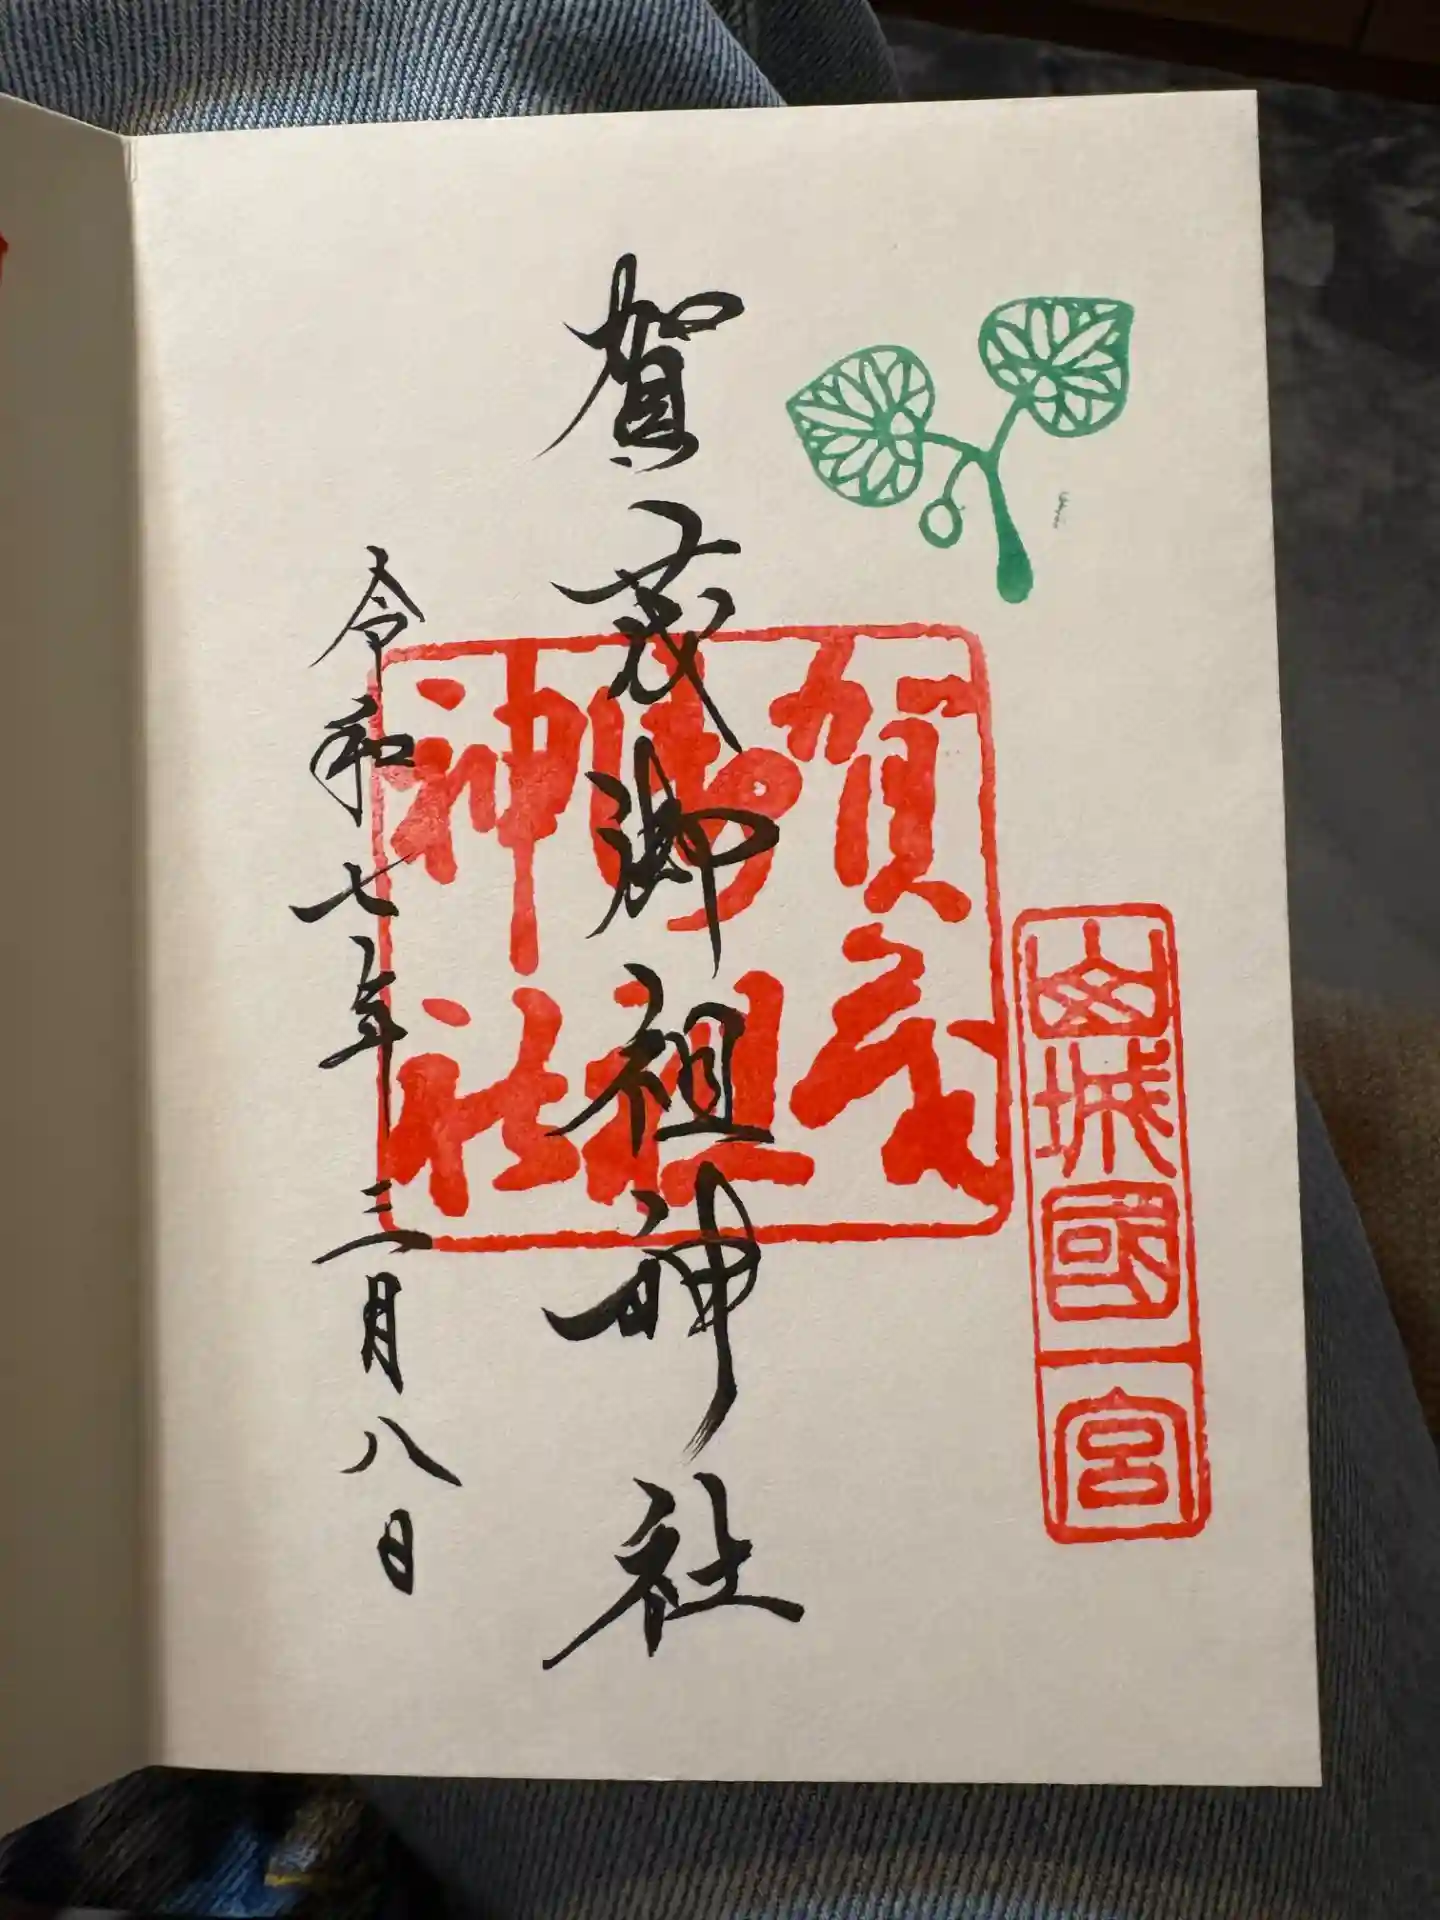 山城國一宮
賀茂御祖神社
賀茂
御祖
神社
令和七年三月八日